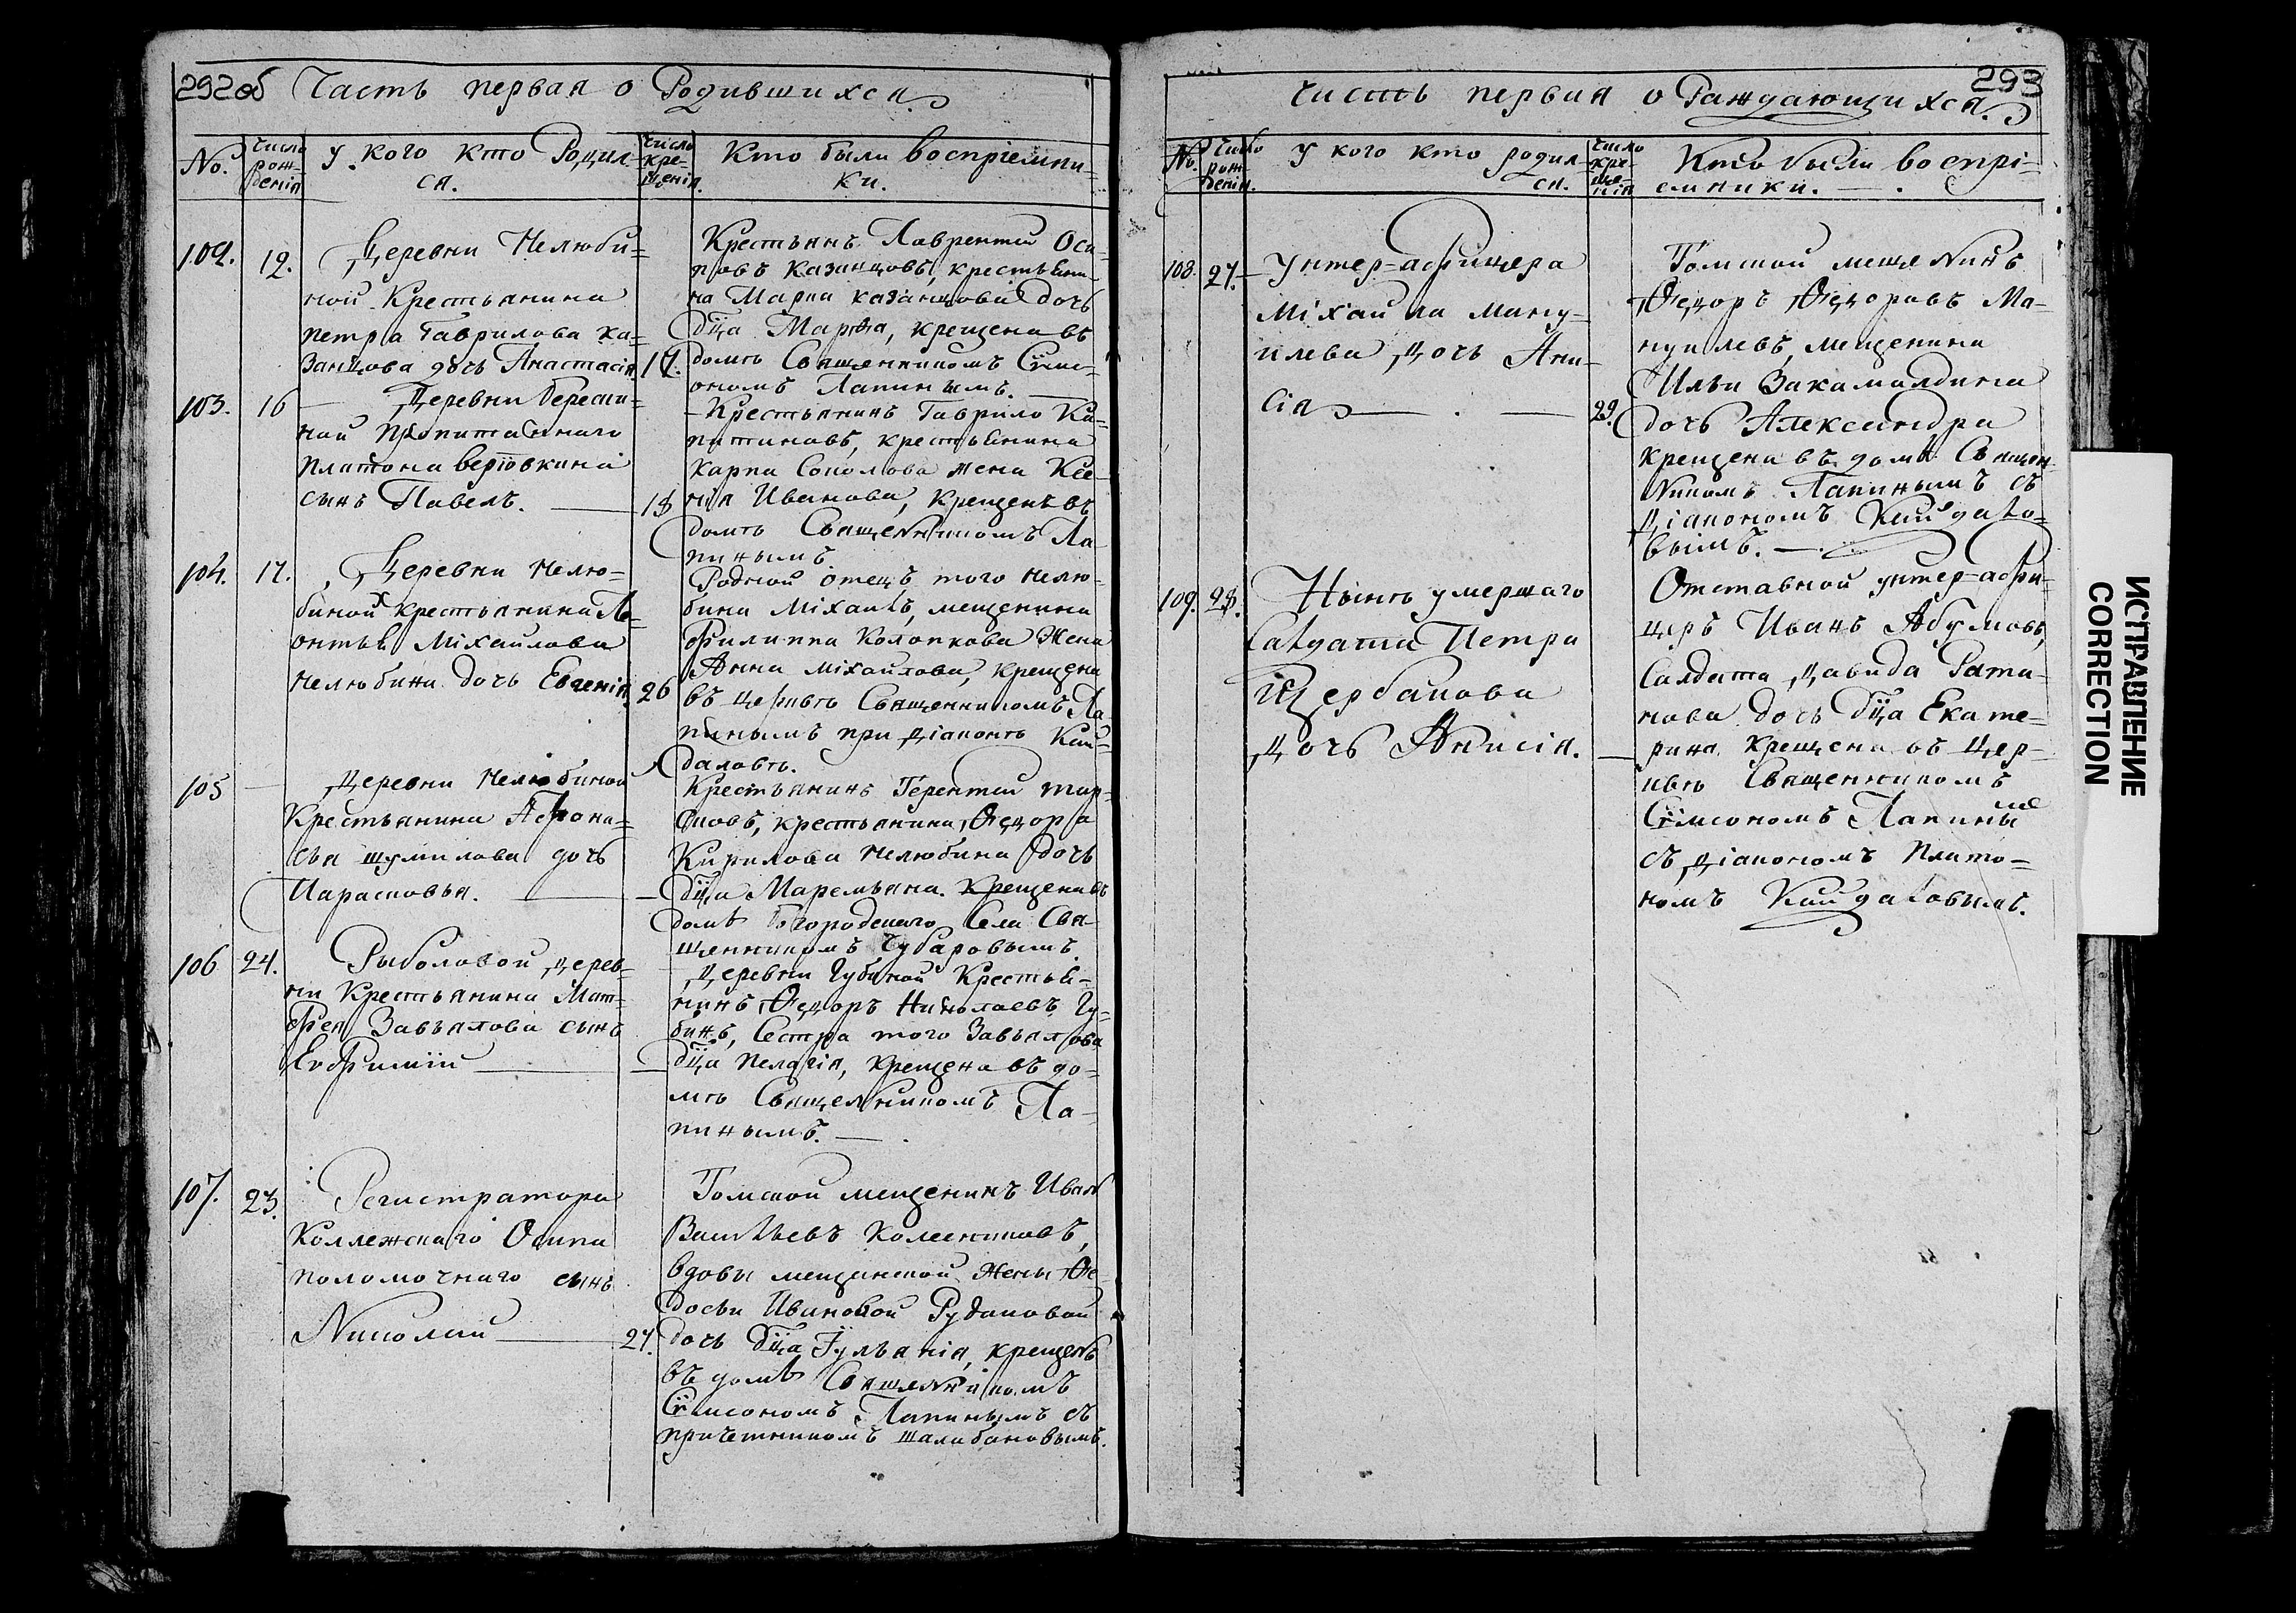 292 об Часть первая о Родившихся.
No.
Число рож=денія
У кого кто Родил=ся.
Число кре=щенія.
Кто были воспріемни=ки.
102.
12.
Деревни Нелюби=
ной Крестьянина
Петра Гаврилова Ка=
занцова дочь Анастасія.
17.
Крестьянъ Лаврентій Оси=
повъ Казанцовъ, крестьяни=
на Марка Казанцова дочь
дѣца Марѳа, крещена въ
домѣ Священникомъ Сѵмс=
ономъ Лапинымъ.
103.
16
Деревни Береski=
ной Пропитаннаго
Платона Верювкина
сынъ Павелъ.
18
Крестьянинъ Гаврило Ка=
питоновъ, крестьянина
Карпа Соколова жена Ксе=
нія Иванова, крещенъ въ
домѣ Священникомъ Ла=
пинымъ.
104.
17.
Деревни Нелю=
биной крестьянина Ле=
онтья Міхайлова
Нелюбина дочь Евгенія.
26
Родной отецъ того Нелю=
бина Міхаилъ, мещенина
Филиппа Колопкова жена
Анна Міхайлова, крещена
въ церквѣ Священникомъ Ла=
пинымъ при Діаконѣ Кай=
даловѣ.
105
Деревни Нелюбиной
Крестьянина Афона=
сья Шумилова дочь
Парасковья.
Крестьянинъ Терентій Тар=
сковъ, крестьянина Ѳедора
Кирилова Нелюбина дочь
дѣца Маремьяна. Крещена въ
домѣ Богородскаго Села Свя=
щенникомъ Чубаровымъ.
106
24.
Рыболовой дерев=
ни Крестьянина Мат=
фея Завьялова сынъ
Евфимій
Деревни Губиной Крестья=
нинъ Ѳедоръ Николаевъ Гу=
бинъ, Сестра того Завьялова
дѣца Пелагія, Крещена въ до=
мѣ Священникомъ Ла=
пинымъ.
107.
23.
Регистратора
Коллежскаго Осипа
Поломочнаго сынъ
Николай
27.
Томской мещенинъ Иванъ
Васильевъ Колесниковъ,
вдовы мещанской жены Ѳе=
досьи Ивановой Рудаковой
дочь дѣца Іульянія, крещенъ
въ домѣ Священникомъ
Сѵмсономъ Лапинымъ съ
причетникомъ Шалабановымъ.
293
Часть первая о Раждающихся.
No.
Число рож=денія.
У кого кто родил=ся.
Число кре=ще=нія
Кто были воспрі=емники.
108.
27.
Унтер=афицера
Міхайла Ману=
илева дочь Ани=
сія
29.
Томской мещенинъ
Ѳедоръ Ѳедоровъ Ма=
нуилевъ, мещенина
Ильи Закамалдина
дочь Александра
крещена въ домѣ Священ=
никомъ Лапинымъ съ
Діакономъ Кайдало=
вымъ.
109.
28.
Нынѣ умершаго
Салдата Петра
Щербакова
дочь Анисія.
Отставной унтер=афи=
церъ Иванъ Абумовъ,
Салдата Давида Рата=
нова дочь дѣца Екате=
рина крещена въ Цер=
квѣ Священникомъ
Сѵмсономъ Лапинымъ
съ Діакономъ Плато=
номъ Кайдаловымъ.
ИСПРАВЛЕНИЕ
CORRECTION